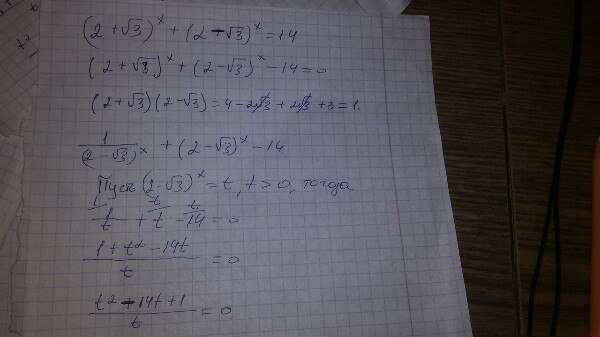 (2+√3)^x + (2-√3)^x = 14
(2+√3)^x + (2-√3)^x - 14 = 0
(2+√3)(2-√3) = 4 - 2√3 + 2√3 + 3 = 1.
1/(2-√3)^x + (2-√3)^x - 14
Пусть (2-√3)^x = t, t > 0, тогда
1/t + t - 14 = 0
(1 + t² - 14t)/t = 0
(t² - 14t + 1)/t = 0